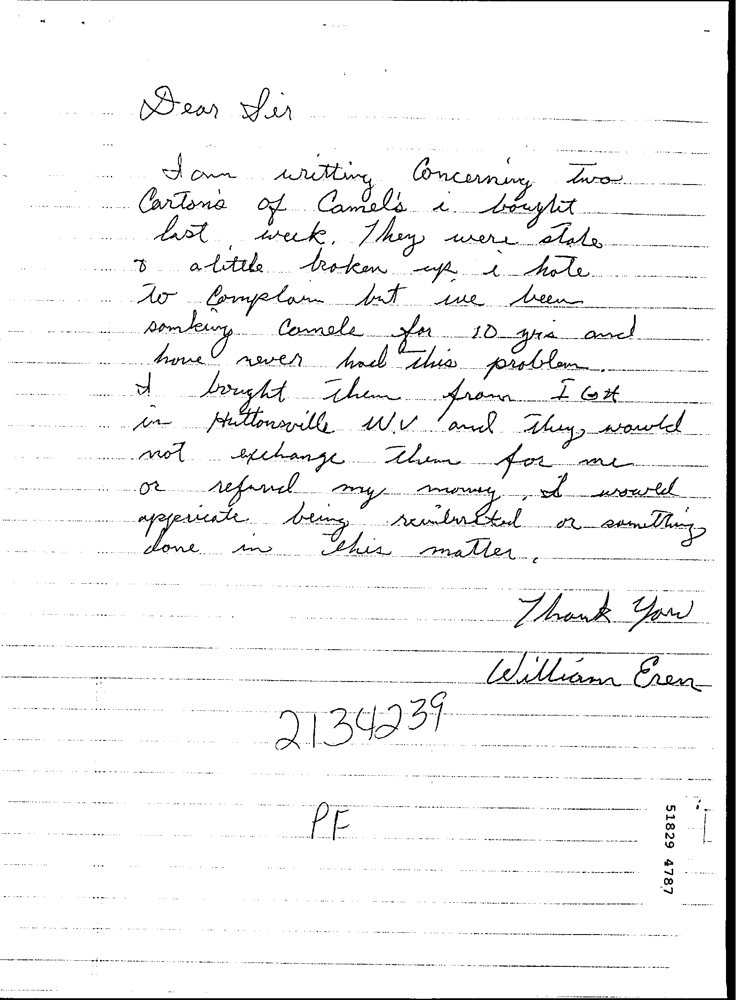 Dear Sir
I am writting Concerning two
Carton's of Camel's i bought
last week. They were stale
& alittle broken up i hate
to Complain but ive been
somkeing Camels for 10 yrs and
have never had this problem.
I bought them from I G A
in Huttonsville W.V and they would
not exchange them for me
or refund my money, I would
apprericate being reimbursted or something
done in this matter.
Thank You
William Eren
2134239
PF
51829 4787